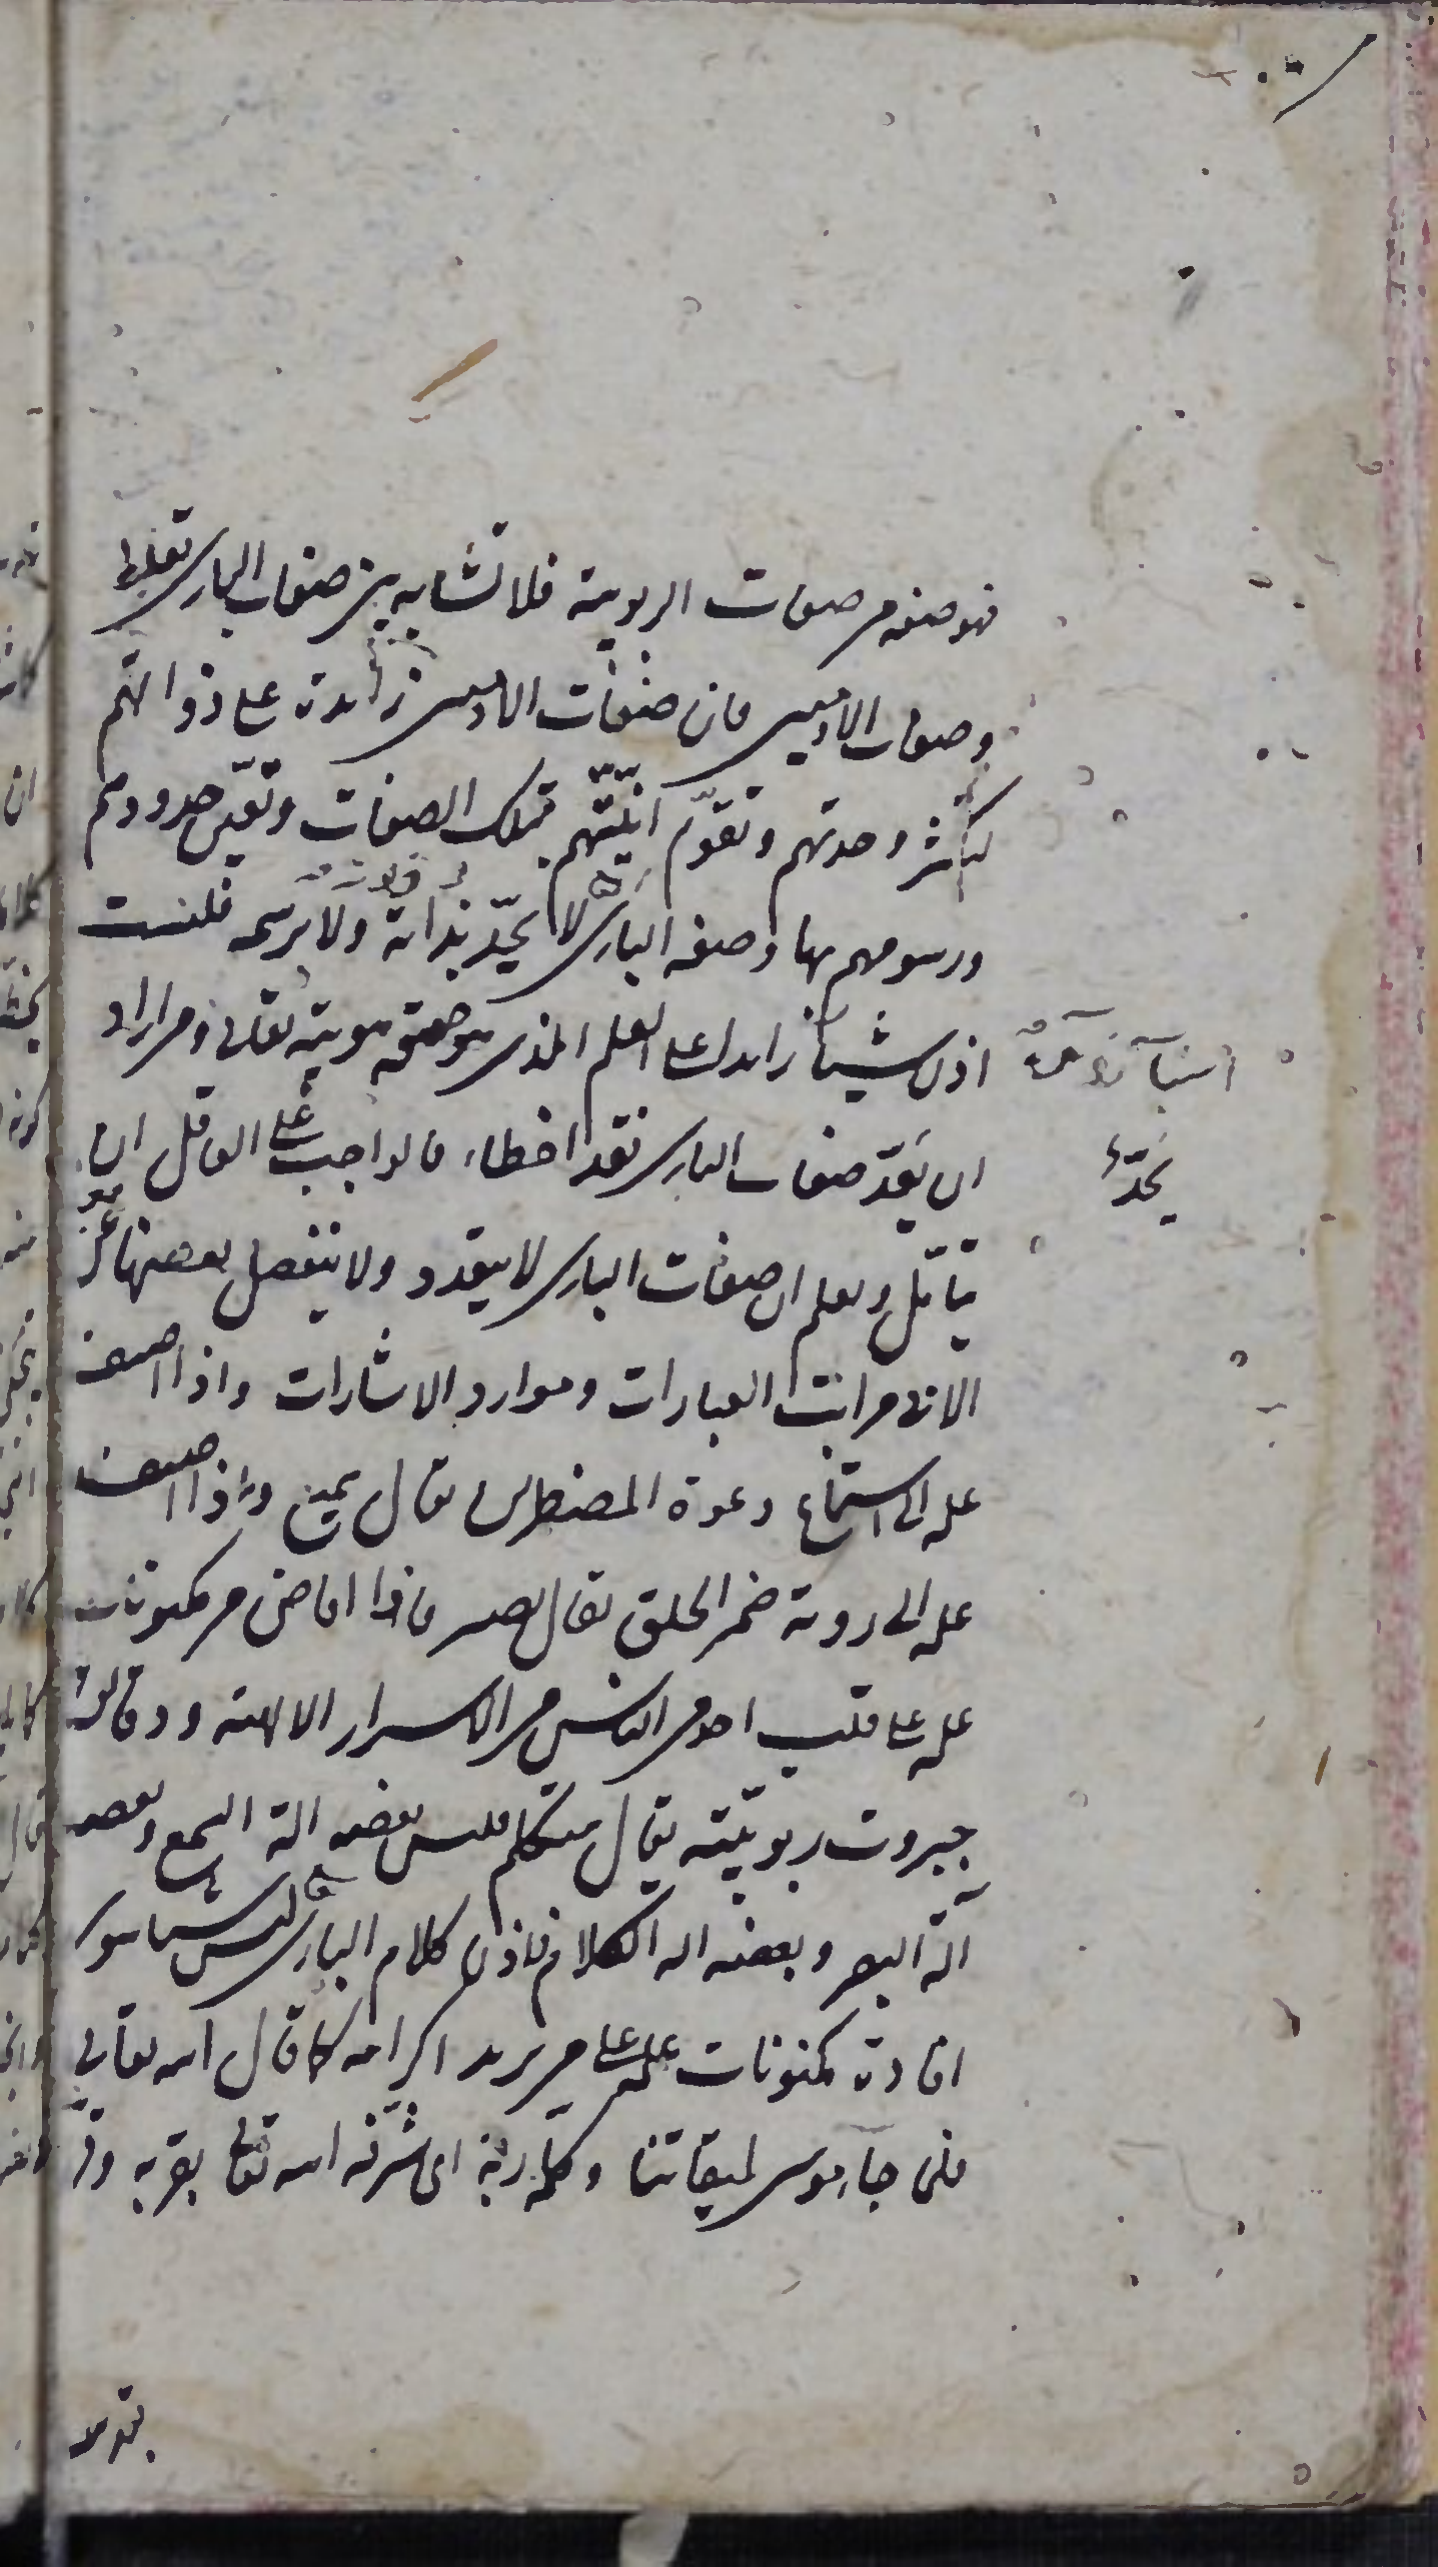 فهو صفة من صفات الربوبية فلا تشابه بين صفات الباري تعالى
وصفات الآدميين فان صفات الآدميين زائدة على ذواتهم
لتكثر وحدتهم وتقوّم انيّتهم بتلك الصفات وتعيّن حدودهم
ورسومهم بها وصفة الباري لا يحدّ بذاته ولا يرسمه فليست
اذن شيئا زايدا على العلم الذي هو حقيقة هويته تعالى ومن اراد
ان يَعُدّ صفات الباري فقد اخطاء فالواجب على العاقل ان
يتأمّل ويعلم ان صفات الباري لا يتعدد ولا ينفصل بعضها عن بعض
الا في مراتب العبارات وموارد الاشارات واذا اضيف
علمه الى استماع دعوة المضطرين يقال سميع واذا اضيف
علمه الى روية ضمير الخلق يقال بصير فاذا افاض من مكنونات
علمه على قلب احد من الناس من الاسرار الالهية ودقائق
جبروت ربوبيّته يقال متكلم فليس بعضه الة السمع وبعضه
آلة البصر وبعضه الة الكلام فاذن كلام الباري ليس شيئا سوى
افادة مكنونات علمه على من يريد اكرامه كما قال الله تعالى
فلما جآء موسى لميقاتنا وكلمه ربّه اى شرّفه الله تعالى بقربه وقر
يحدّه
بقدسه